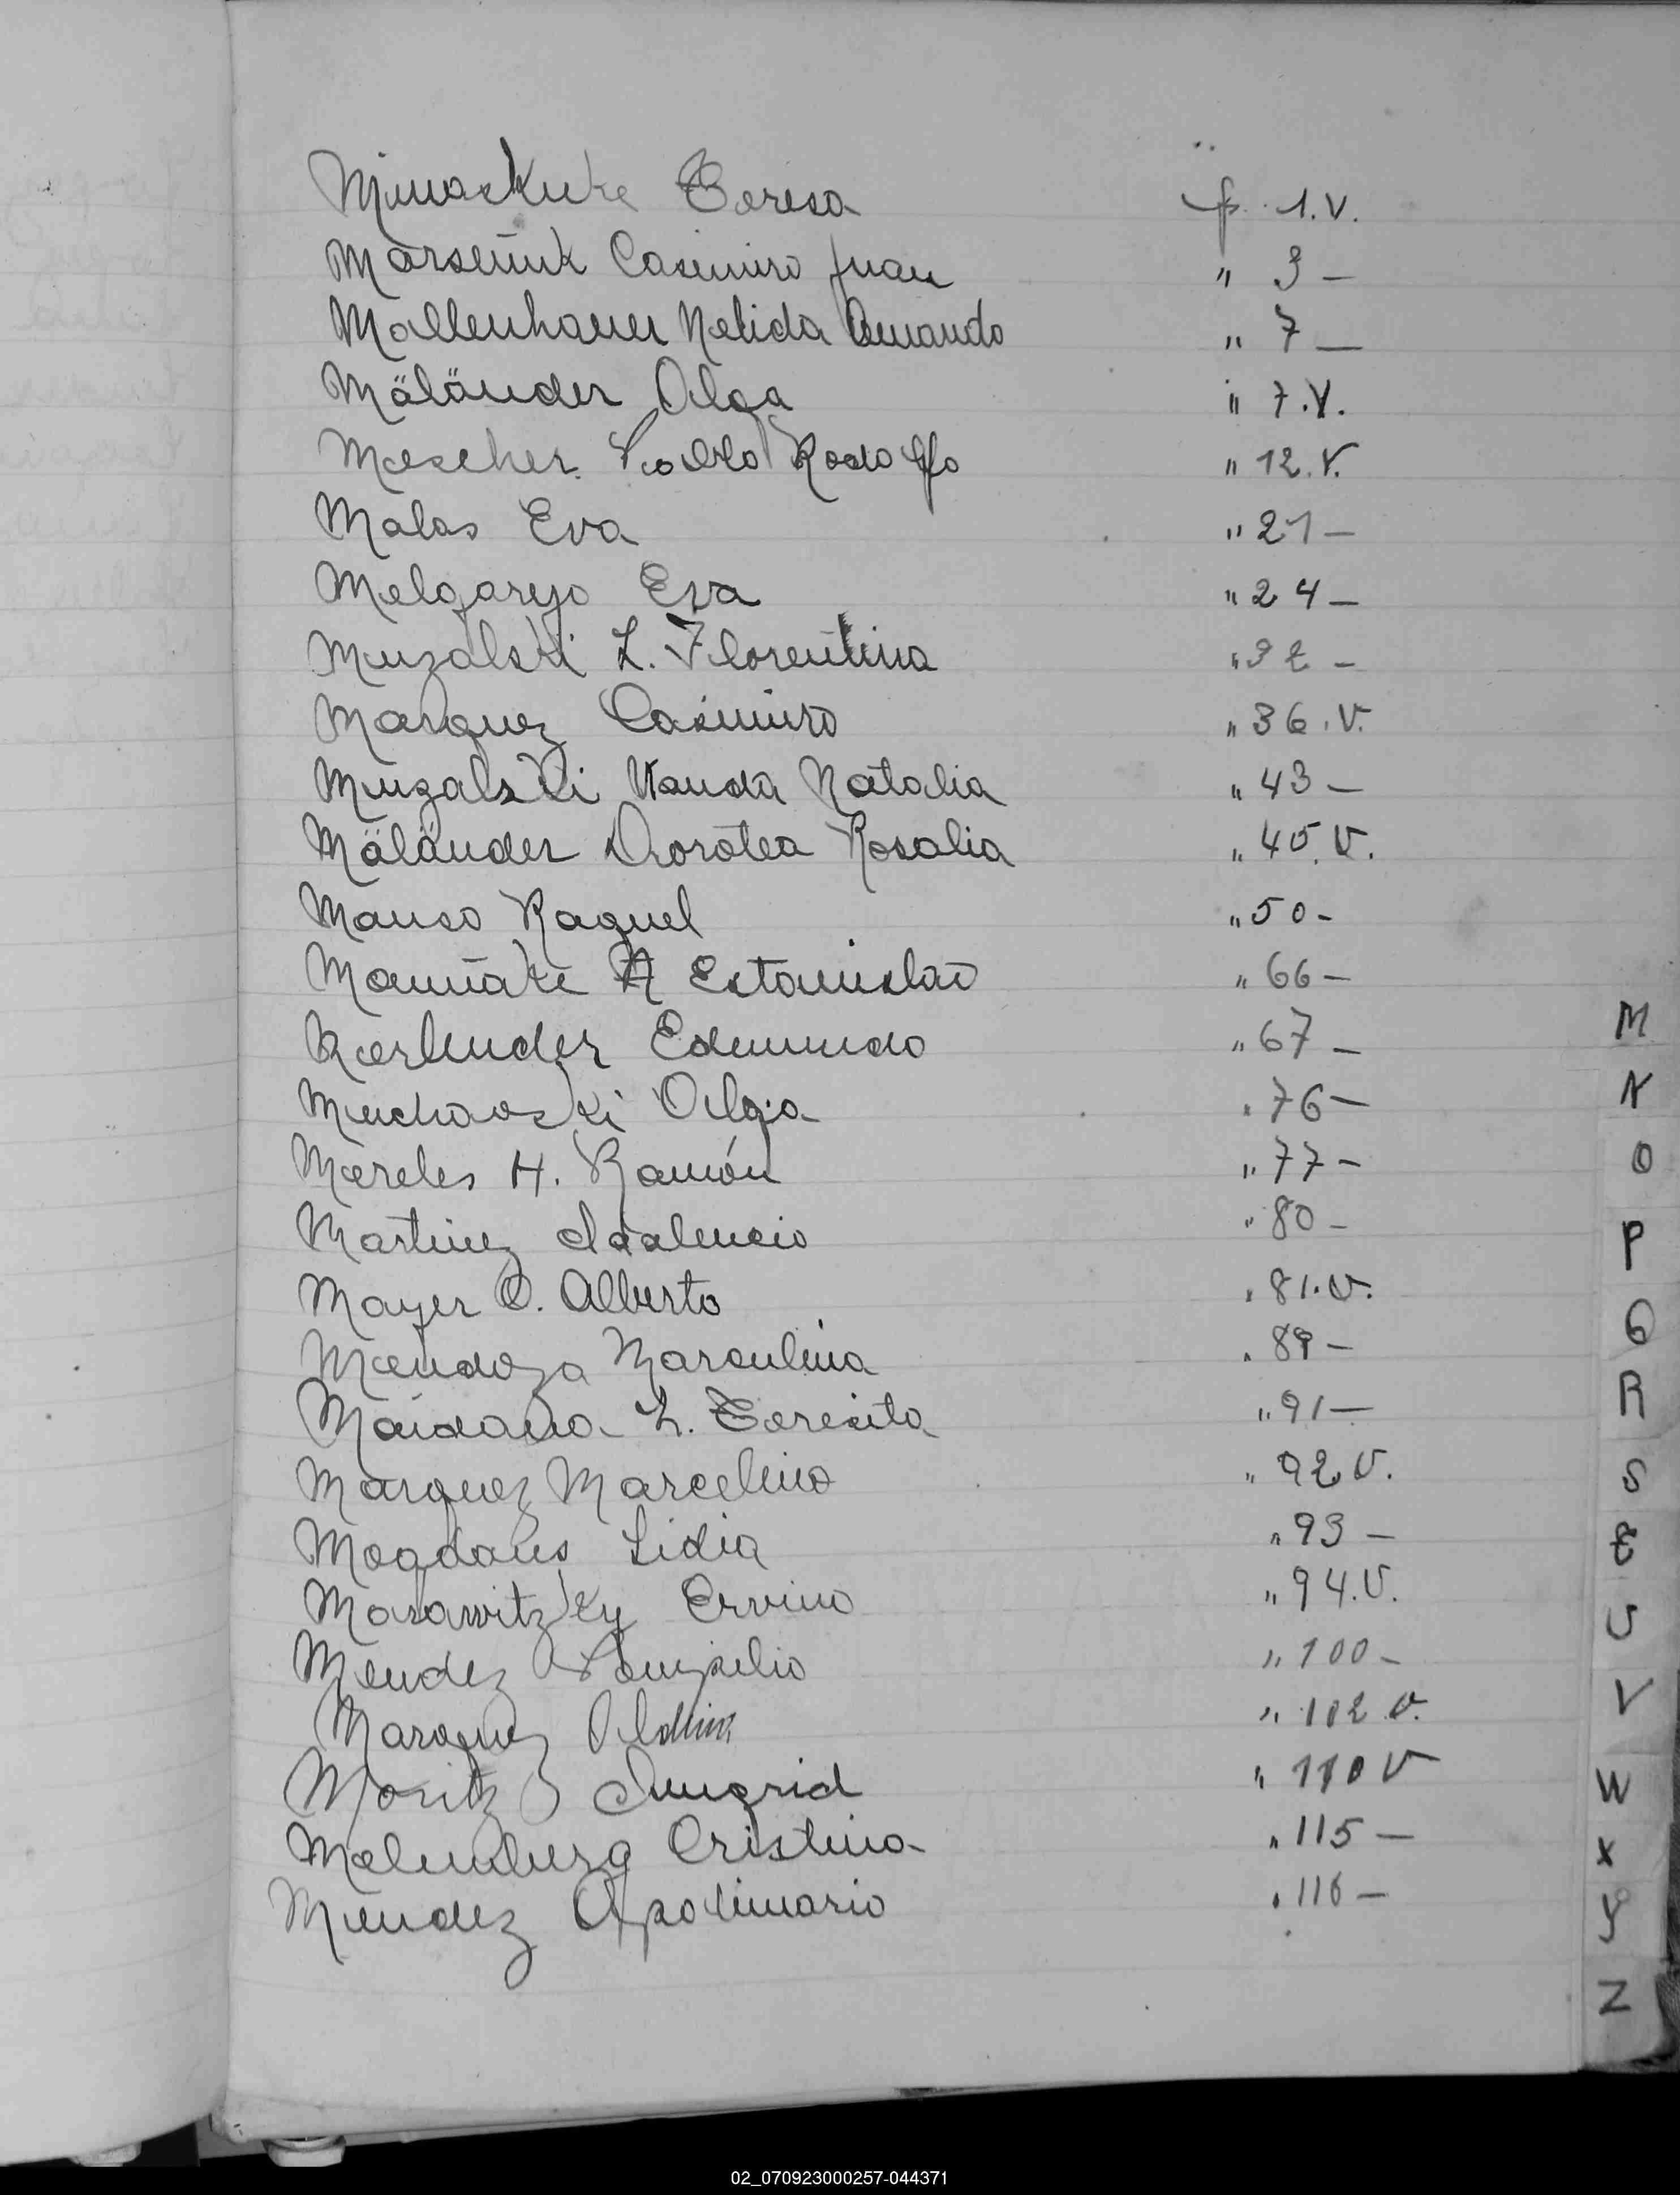 Teresa f. 1.V.
Marseñuk Casimiro Juan " 3 —
Mollenhauer Nelida Amanda " 7 —
Mäländer Olga " 7.V.
Mescher Pablo Rodolfo " 12.V.
Malas Eva " 21 —
Melgarejo Eva " 24 —
Muzalski L. Florentina " 32 —
Marquez Casimiro " 36.V.
Muzalski Wanda Natalia " 43 —
Mäländer Dorotea Rosalia " 45.V.
Manso Raquel " 50 -
A Estanislao " 66 —
Edmundo " 67 —
Muchowski Olga " 76 —
Mereles H. Ramón " 77 —
Martinez Idalencio " 80 —
Mayer O. Alberto " 81.V.
Mendoza Marculina " 89 —
Maidana L. Teresita " 91 —
Marquez Marcelino " 92 V.
Mogdans Lidia " 93 —
Masawitzky Ervino " 94.V.
Mendez Pompilio " 100 —
Marquez " 102 V.
Moritz Inngrid " 110 V
Melemburg Cristina " 115 —
Mendez Apolinario " 116 —
M
N
O
P
Q
R
S
T
U
V
W
X
Y
Z
02_070923000257-044371